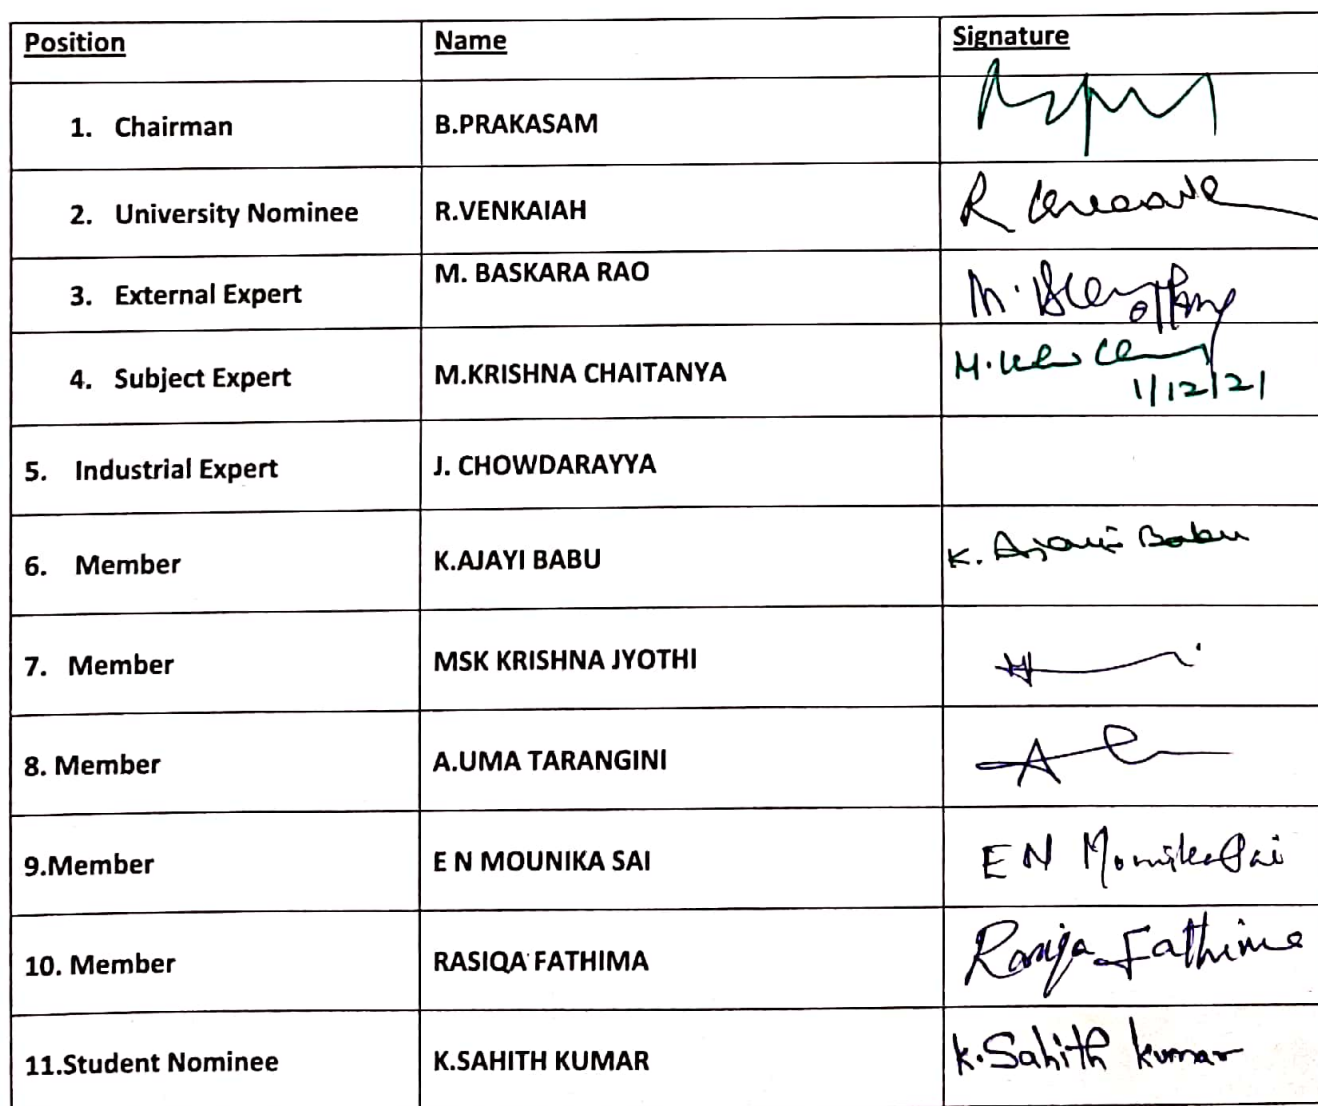 Position Name Signature
1. Chairman B.PRAKASAM
2. University Nominee R.VENKAIAH R
3. External Expert M. BASKARA RAO M.
4. Subject Expert M.KRISHNA CHAITANYA M.
1/12/21
5. Industrial Expert J. CHOWDARAYYA
6. Member K.AJAYI BABU K. Ajayi Babu
7. Member MSK KRISHNA JYOTHI
8. Member A.UMA TARANGINI A
9.Member E N MOUNIKA SAI E N Mounika Sai
10. Member RASIQA FATHIMA Rasiqa Fathima
11.Student Nominee K.SAHITH KUMAR K.Sahith kumar